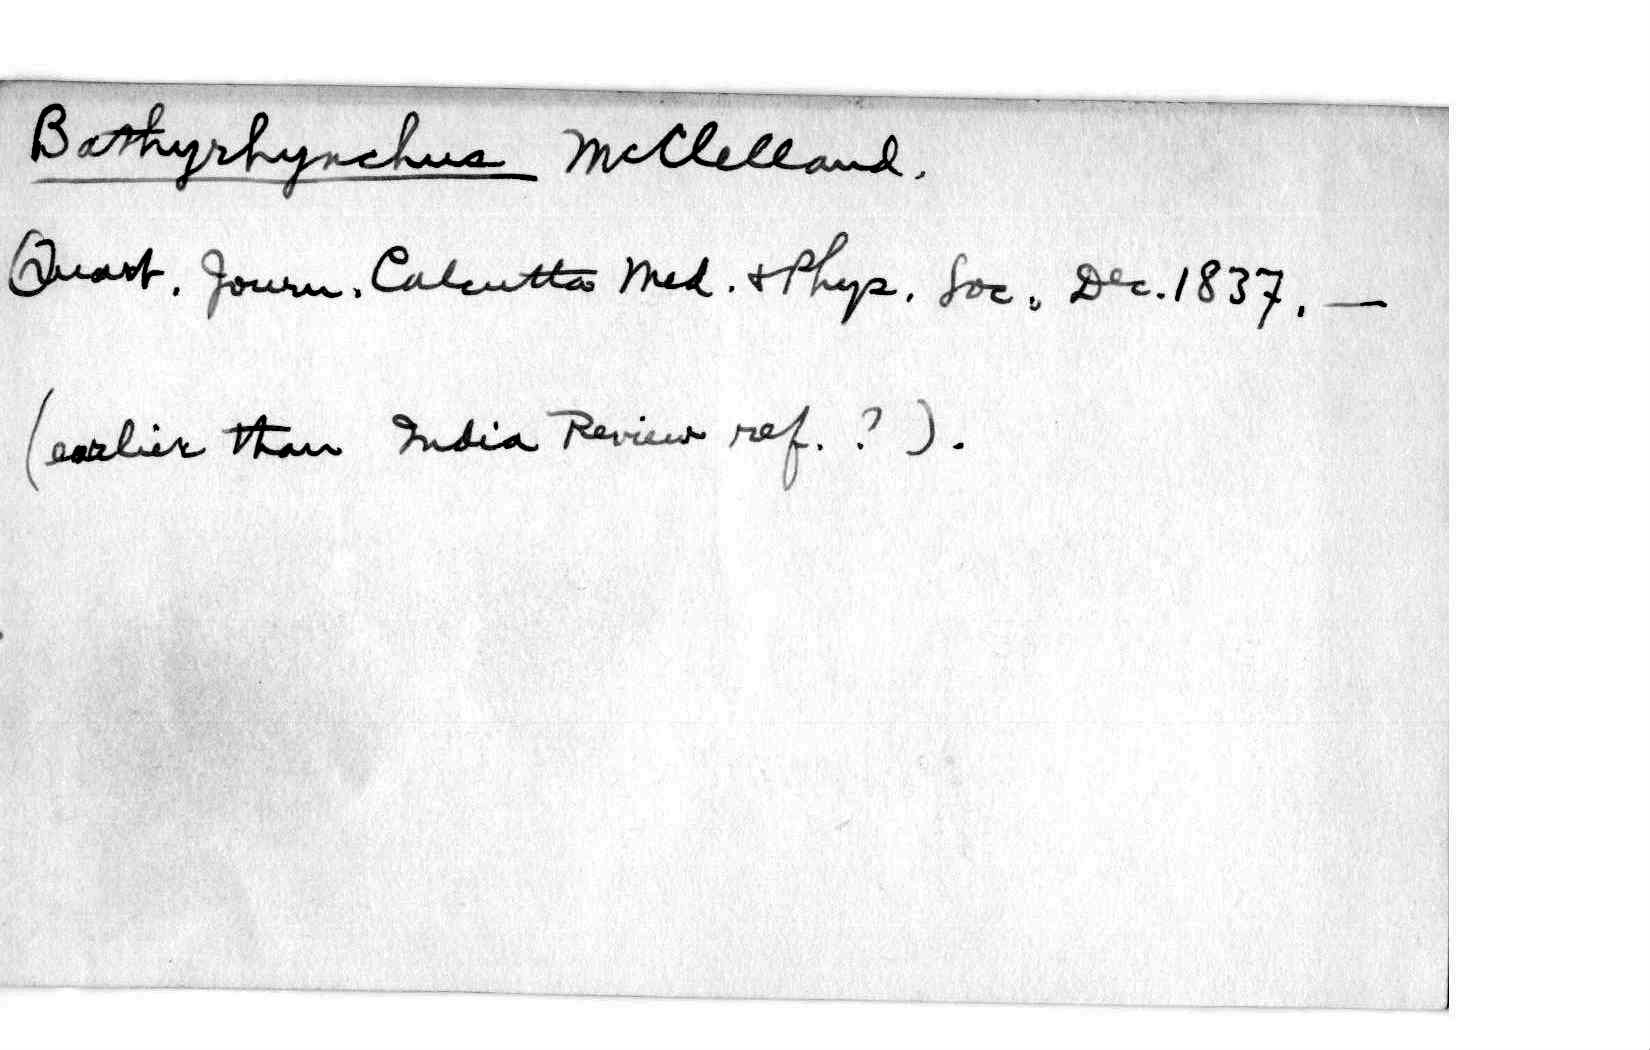 Bathyrhynchus McClelland.
Quart. Journ. Calcutta Med. & Phys. Soc., Dec. 1837. —
(earlier than India Review ref. ?).